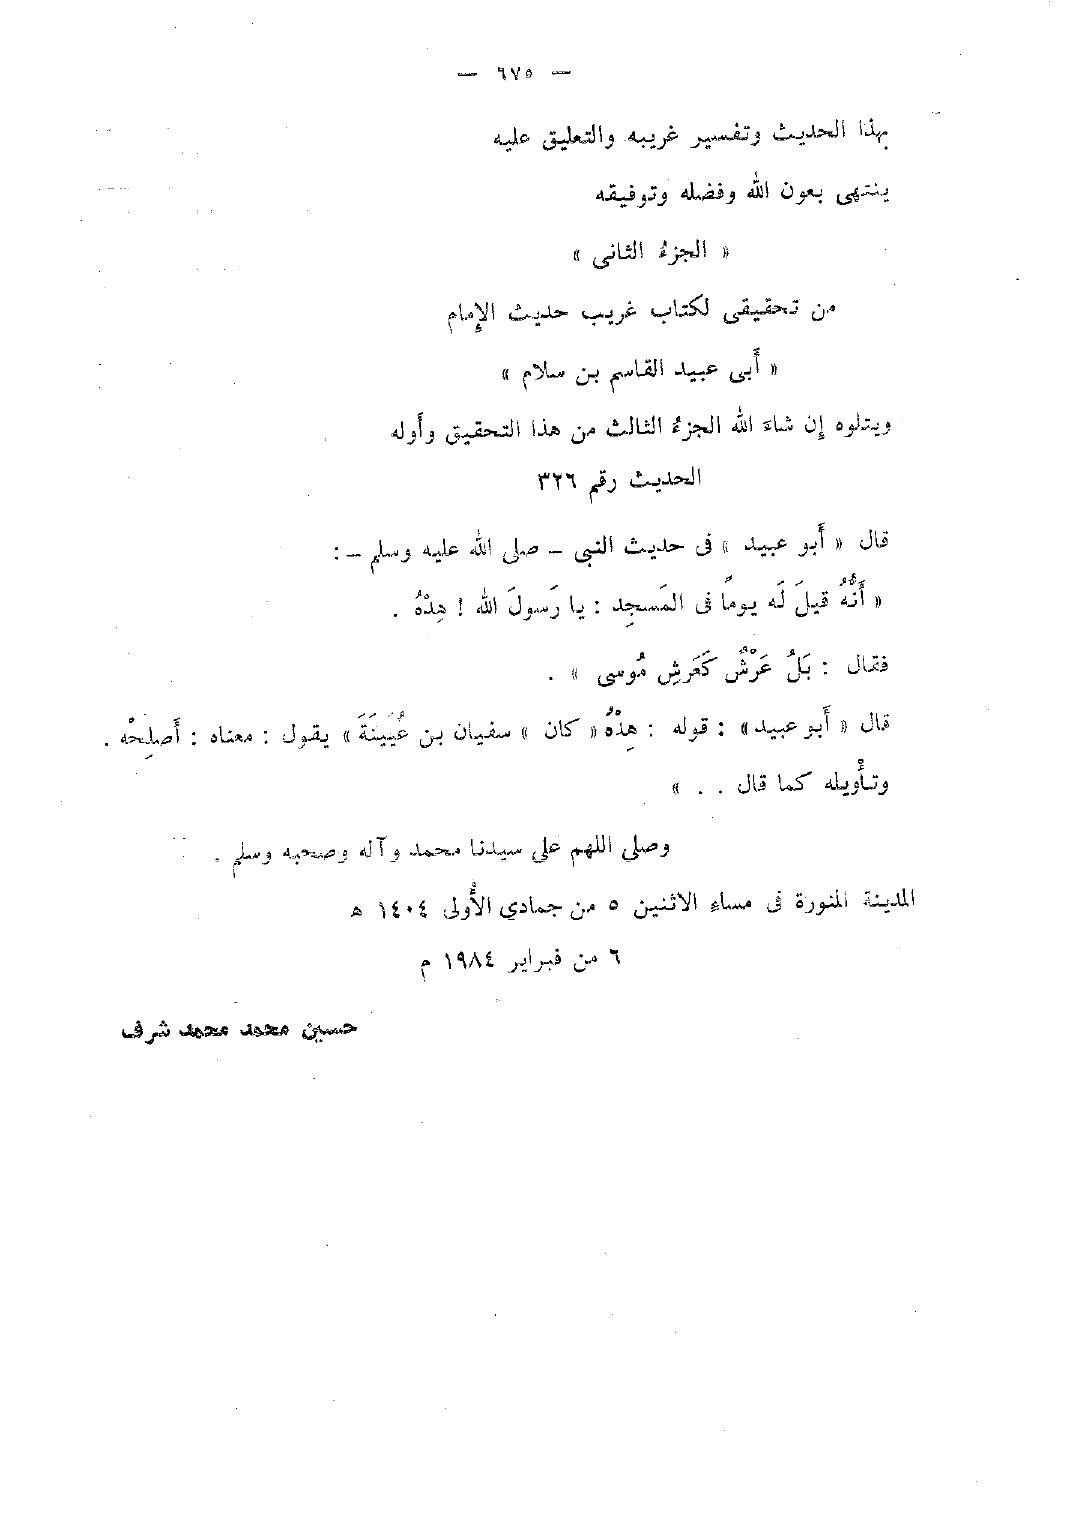 — ٦٧٥ —
بهذا الحديث وتفسير غريبه والتعليق عليه
ينتهى بعون الله وفضله وتوفيقه
« الجزءُ الثانى »
من تحقيقى لكتاب غريب حديث الإمام
« أَبى عبيد القاسم بن سلام »
ويتلوه إن شاءَ الله الجزءُ الثالث من هذا التحقيق وأَوله
الحديث رقم ٣٢٦
قال « أَبو عبيد » فى حديث النبى – صلى الله عليه وسلم – :
« أَنَّهُ قيلَ لَه يوماً فى المَسجِد : يا رَسولَ الله ! هِدْهُ .
فقال : بَلْ عَرْشٌ كَعَرشِ مُوسى » .
قال « أَبو عبيد» : قوله : هِدْهُ « كان » سفيان بن عُيَينَةَ » يقول : معناه : أَصلِحْه .
وتأْويله كما قال . . »
وصلى اللهم على سيدنا محمد وآله وصحبه وسلم .
المدينة المنورة فى مساءِ الاثنين ٥ من جمادي الأُولى ١٤٠٤ ه
٦ من فبراير ١٩٨٤ م
حسين محمد محمد شرف